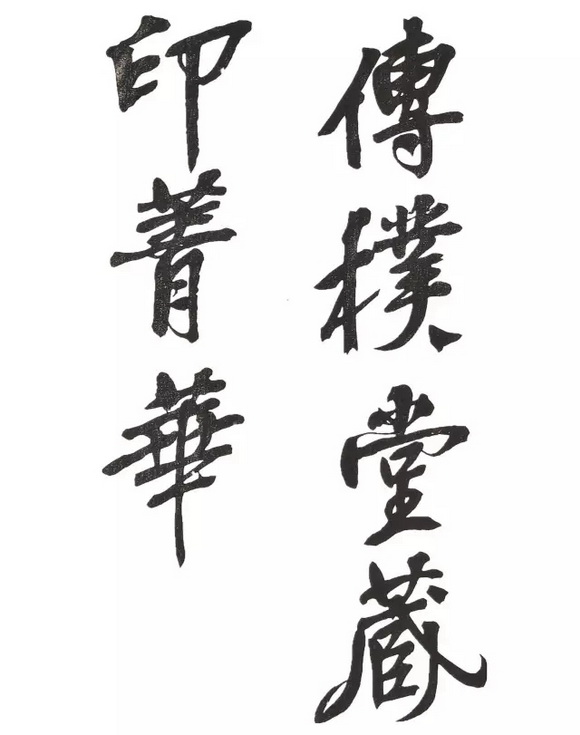 傳樸堂藏
印菁華